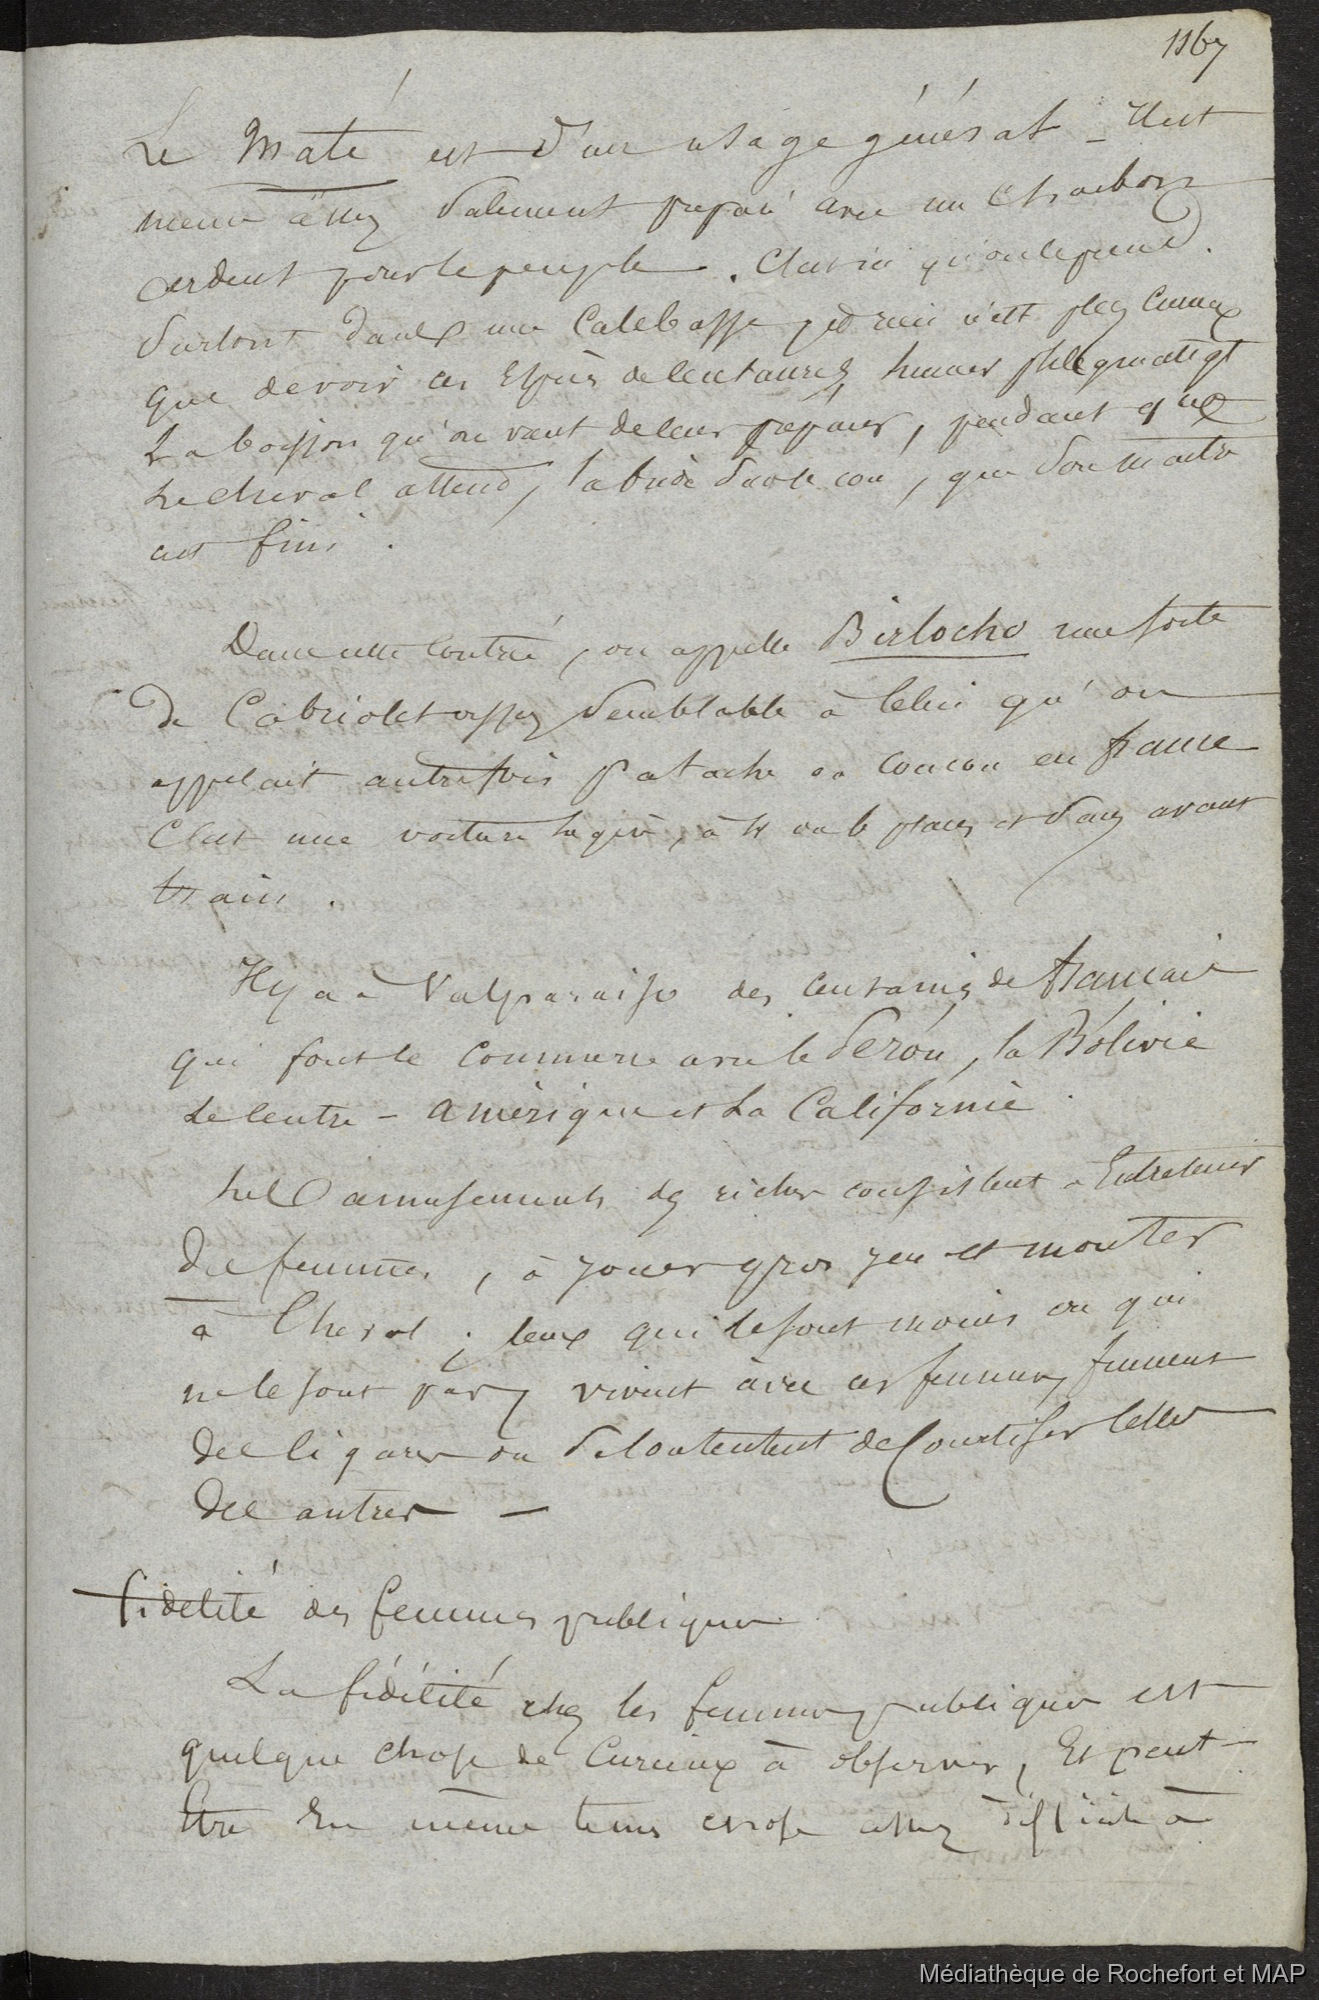 1167
Le Maté est d'un usage général _ Il est
même assez salement preparé avec un charbon
ardent pour le peuple. C'est ainsi qu'on le prend
surtout dans une Calebasse et rien n'est plus curieux
que de voir ces Espèces de Centaures humer phlegmatiqt
La boisson qu'on vient de leur préparer, pendant que
Le cheval attend, la bride sur le cou, que son maitre
ait fini.
Dans cette Contrée, on appelle Birlocho une sorte
de Cabriolet assez semblable à Celui qu'on
appelait autrefois patache ou Coucou en france
C'est une voiture légère, à 4 ou 6 places et sans avant
train.
Il y a à Valparaiso des centaines de francais
qui font le commerce avec le Pérou, la Bolivie
Le Centre-Amérique et La Californie.
Les amusements des riches consistent à Entretenir
des femmes, à jouer gros jeu et monter
à Cheval; Ceux qui le sont moins ou qui
ne le sont pas vivent avec ces femmes, fument
des Cigares ou se Contentent de Courtiser Celles
des autres —
fidelité des femmes publiques
La fidélité chez les femmes publiques est
quelque chose de Curieux à observer, Et peut-
Etre En même tems chose assez difficile à
Médiathèque de Rochefort et MAP